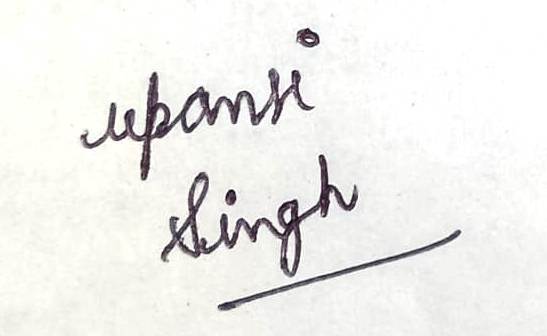 upansi
Singh